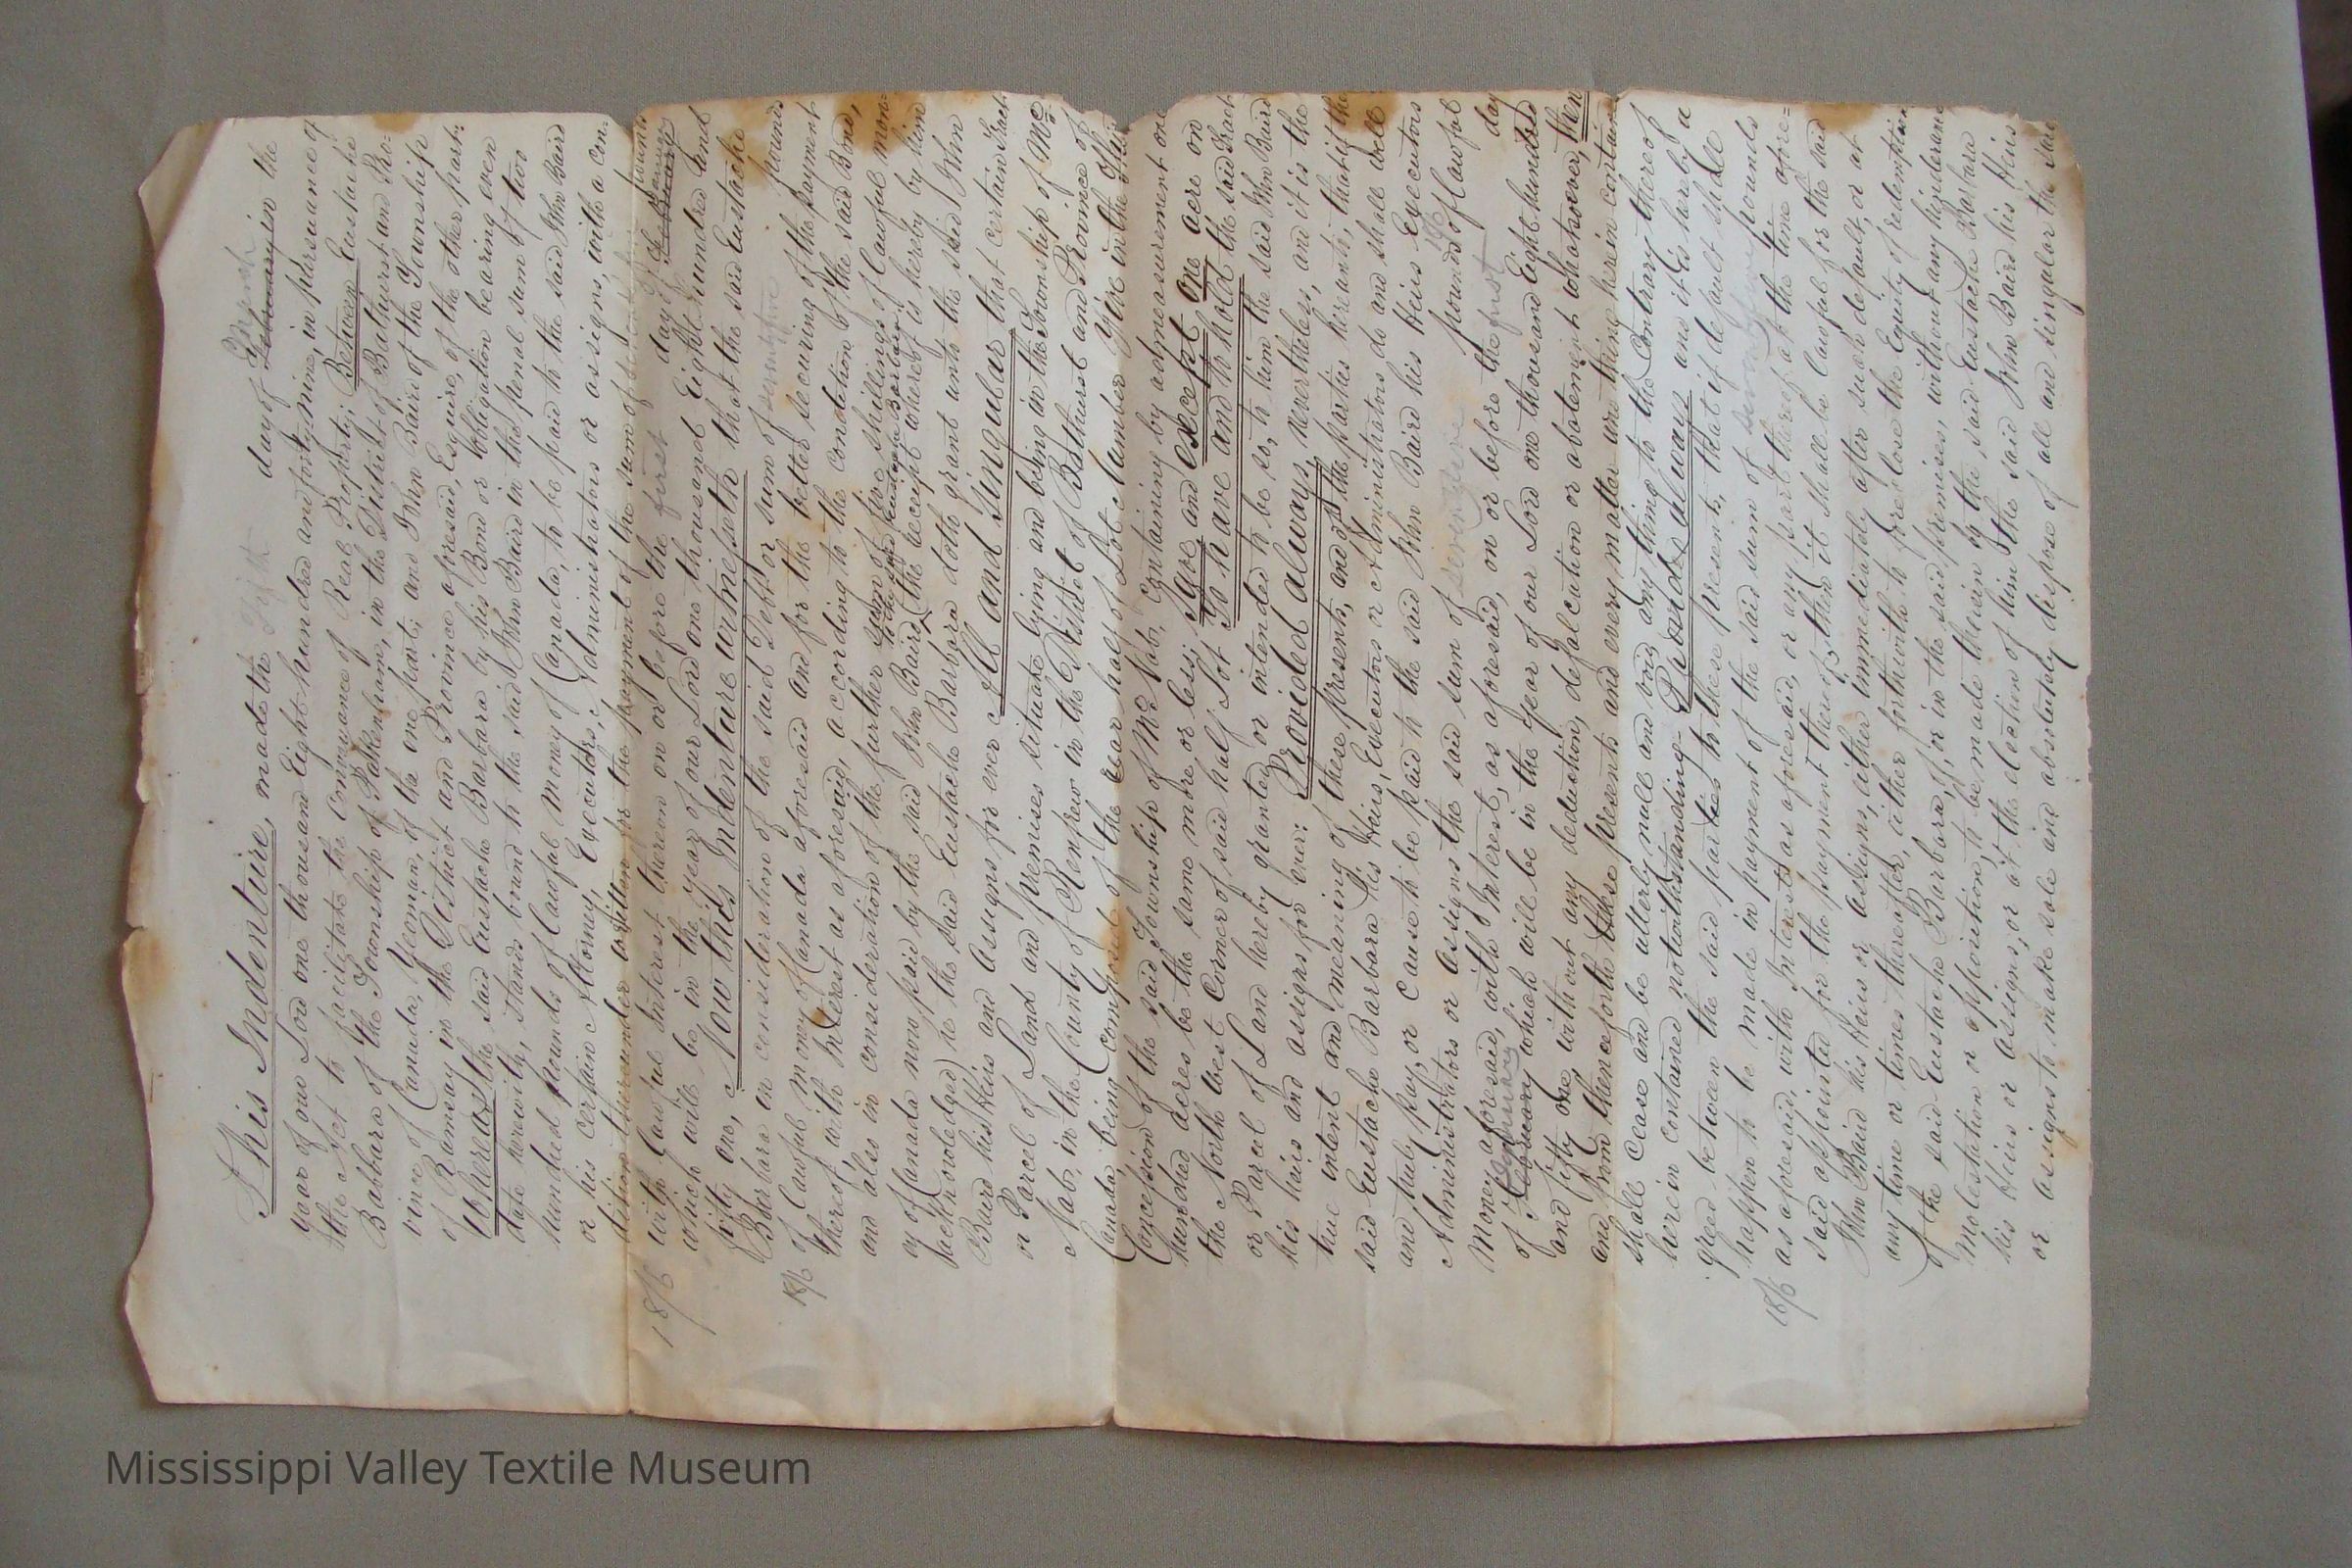 This Indenture, made the Fifth day of March February in the
year of our Lord one thousand Eight hundred and forty nine, in pursuance of
the Act to facilitate the conveyance of Real Property; Between Eustache
Barbara of the Township of Pakenham, in the District of Bathurst and Pro-
vince of Canada, Yeoman, of the one part; and John Baird of the Township
of Ramsay in the District and Province aforesaid, Esquire, of the other part:
Whereas the said Eustache Barbara by his Bond or obligation bearing even
date herewith, stands bound to the said John Baird in the penal sum of two
hundred pounds of lawful money of Canada, to be paid to the said John Baird
or his certain Attorney, Executors, Administrators or assigns, with a con-
dition thereunder written for the payment of the sum of
with lawful Interest thereon on or before the first day of
18/6
which will be in the year of our Lord one thousand Eight hundred and
fifty one, Now this Indenture witnesseth that the said Eustache
Barbara in consideration of the said Debt or sum of seventyfive pounds
18/6
of lawful money of Canada aforesaid and for the better securing of the payment
thereof, with Interest as aforesaid, according to the condition of the said Bond,
and also in consideration of the further sum of five shillings of lawful mon-
to the said Eustache Barbara
ey of Canada now paid by the said John Baird (the receipt whereof is hereby by him
acknowledged) he the said Eustache Barbara doth grant unto the said John
Baird his Heirs and Assigns for ever All and Singular that certain Tract
or Parcel of Land and Premises situate lying and being in the Township of Mc
Nab, in the County of Renfrew in the District of Bathurst and Province of
Canada, being composed of the rear half of Lot Number Five in the
Concession of the said Township of McNab, containing by admeasurement one
hundred acres be the same more or less; Save and except One acre on
the North West Corner of said half Lot To have and to hold the said Tract
or Parcel of Land hereby granted or intended to be so, to him the said John Baird
his heirs and assigns for ever: Provided always, nevertheless, and it is the
true intent and meaning of these presents, and of the parties hereunto, that if the
said Eustache Barbara His Heirs, Executors or Administrators do and shall well
and truly pay, or cause to be paid to the said John Baird his Heirs Executors
Administrators or Assigns the said sum of seventyfive pounds of lawful
18/6
money aforesaid, with Interest, as aforesaid, on or before the first day
of February which will be in the year of our Lord one thousand Eight hundred
and fifty one, without any deduction, defalcation or abatement whatsoever, then
and from thenceforth these presents and every matter and thing herein contained
shall cease and be utterly null and void any thing to the Contrary thereof
herein contained notwithstanding. Provided always and it is hereby a
greed between the said parties to these presents, that if default shall
happen to be made in payment of the said sum of seventyfive pounds
18/6
as aforesaid, with Interest as aforesaid, or any part thereof at the time afore=
said appointed for the payment thereof, then it shall be lawful for the said
John Baird his Heirs or assigns, either immediately after such default, or at
any time or times thereafter, either forthwith to foreclose the Equity of redemption
of the said Eustache Barbara, of, or in the said premises, without any hinderance
molestation or opposition, to be made therein by the said Eustache Barbara
his Heirs or Assigns, or at the election of him the said John Baird his Heirs
or assigns to make sale and absolutely dispose of all and singular the said
Mississippi Valley Textile Museum